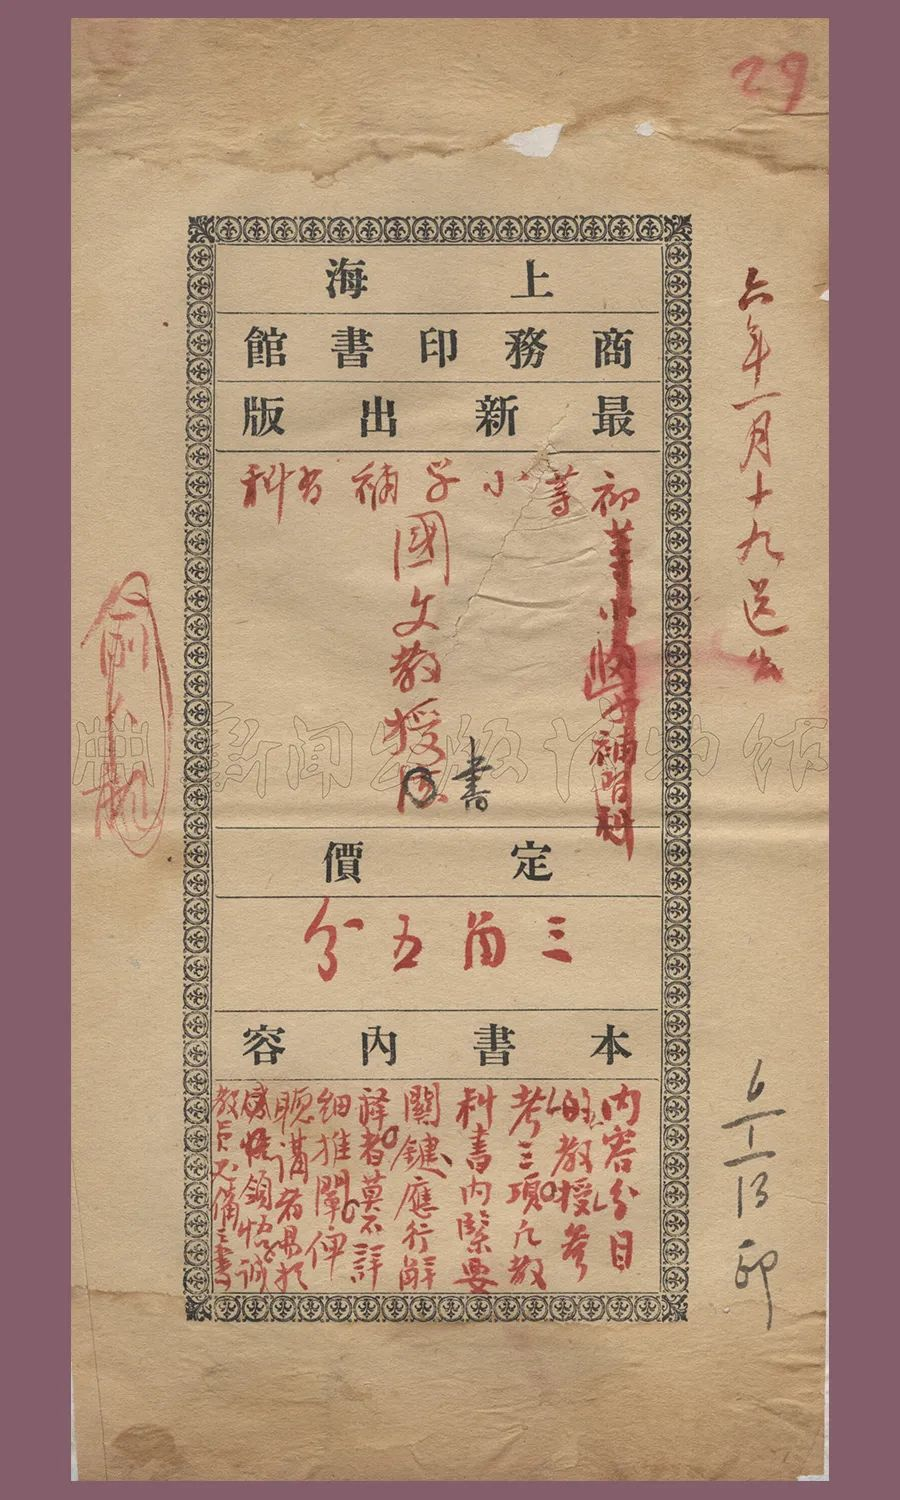 29
六年一月十九送出
上海
商務印書館
最新出版
初等小学補習科
初等小學補習科
國文教授
書
定價
三角五分
本書內容
内容分目
的教授參
考三項凡教
科書内緊要
關鍵應行解
釋者莫不詳
細推闡俾
聽講者易於
領悟誠
教員必備之書
6-1-13 印
新聞出版博物館